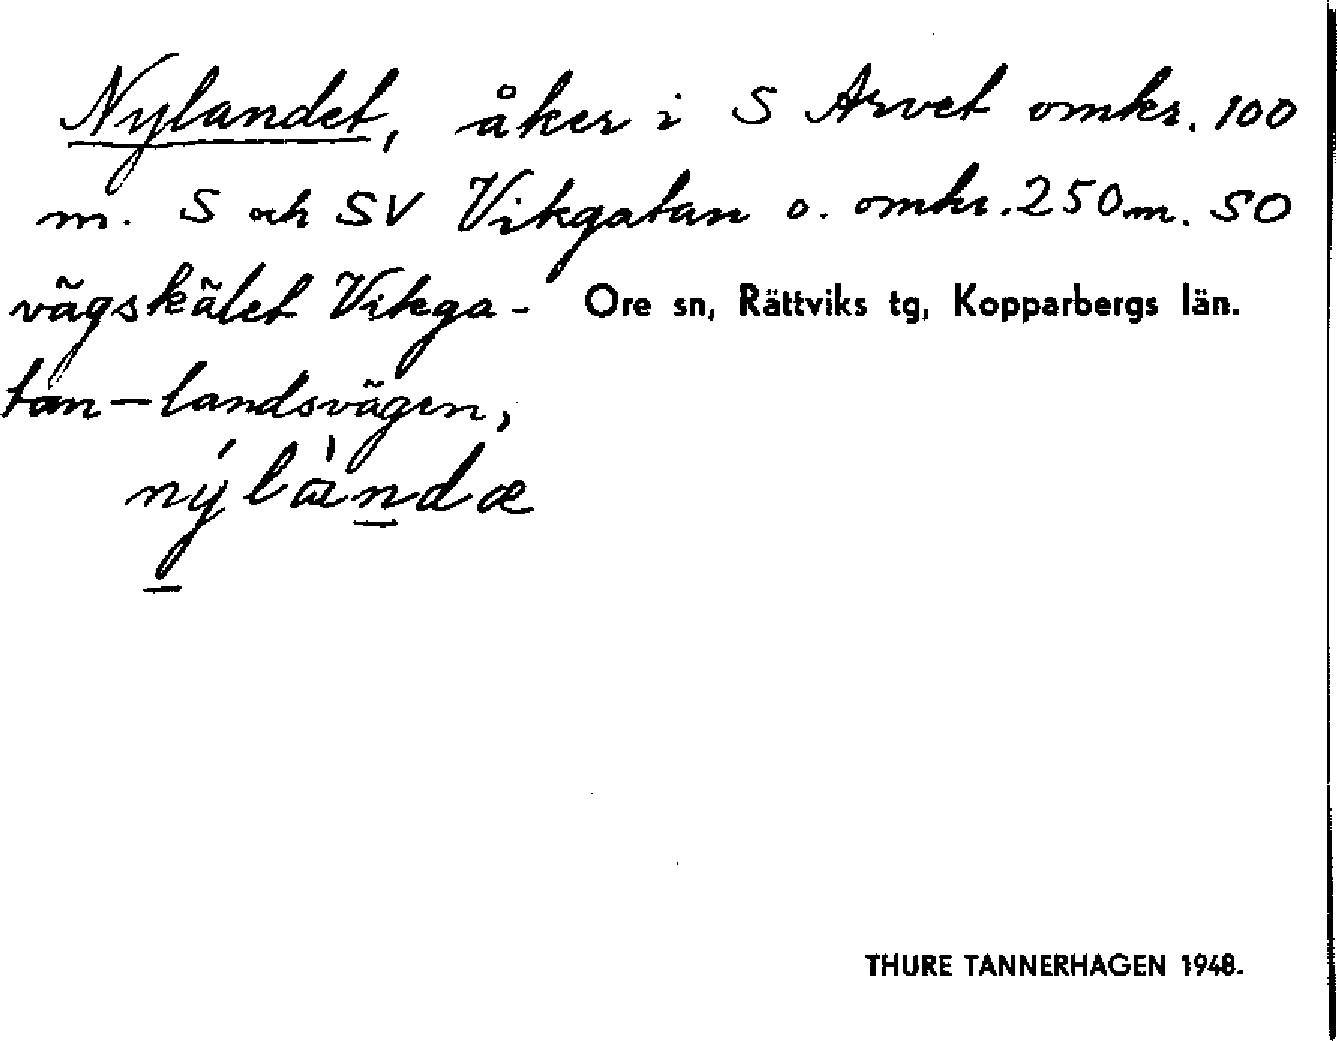 Nylandet, åker i S Arvet omkr. 100
m. S och SV Vikgatan o. omkr. 250 m. SO
vägskälet Vikga- Ore sn, Rättviks tg, Kopparbergs län.
tan – landsvägen,
THURE TANNERHAGEN 1948.